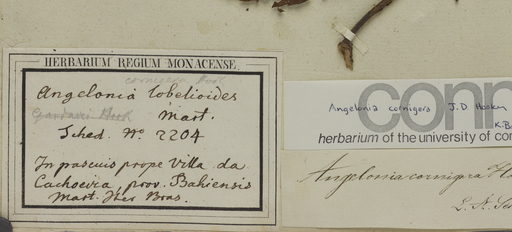 HERBARIUM REGIUM MONACENSE.
cornigera Hook
Angelonia lobelioides
Gardneri Hook Mart.
Sched. No. 2204
In pascuis prope Villa da
Cachoeira, prov. Bahiensis
Mart. Iter Bras.
conn
Angelonia cornigera J.D. Hooker
K.B
herbarium of the university of con
Angelonia cornigera